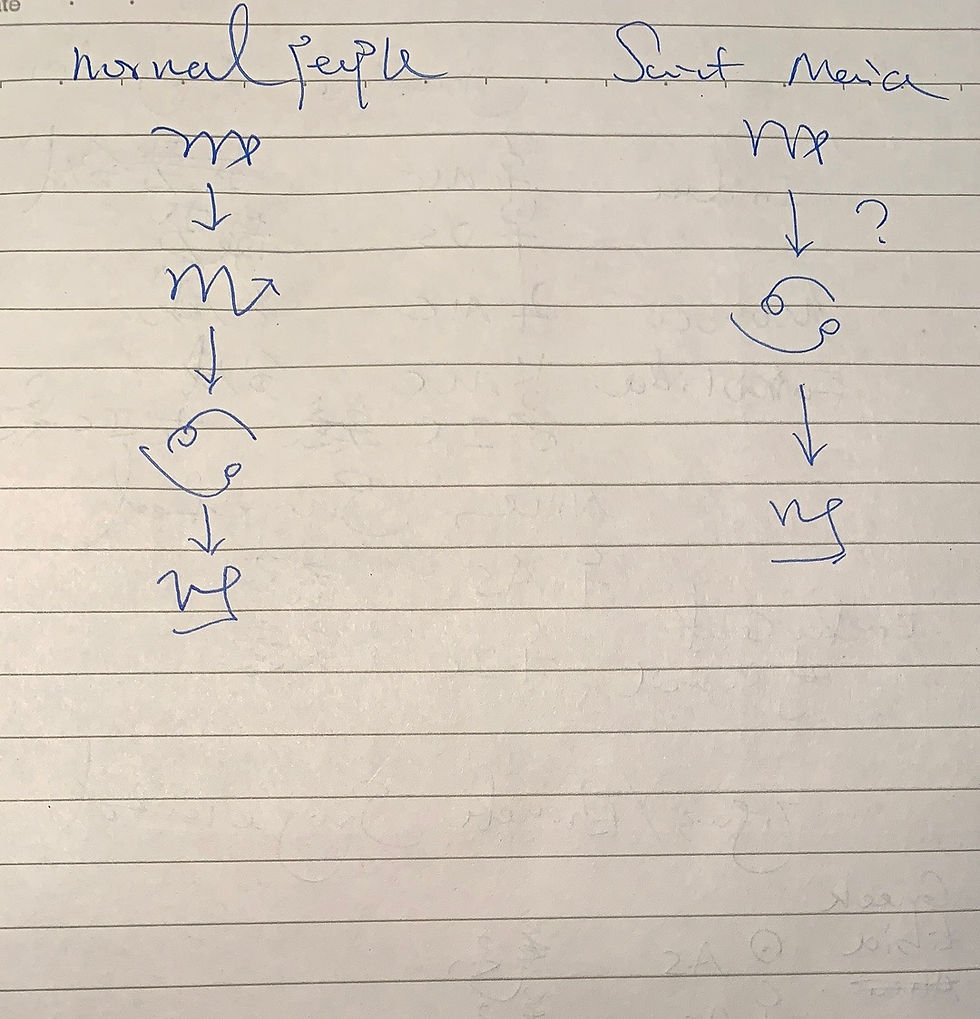 normal people Saint Maria
♍ ♍
↓ ↓ ?
♏ ♋
↓ ↓
♋ ♑
↓
♑